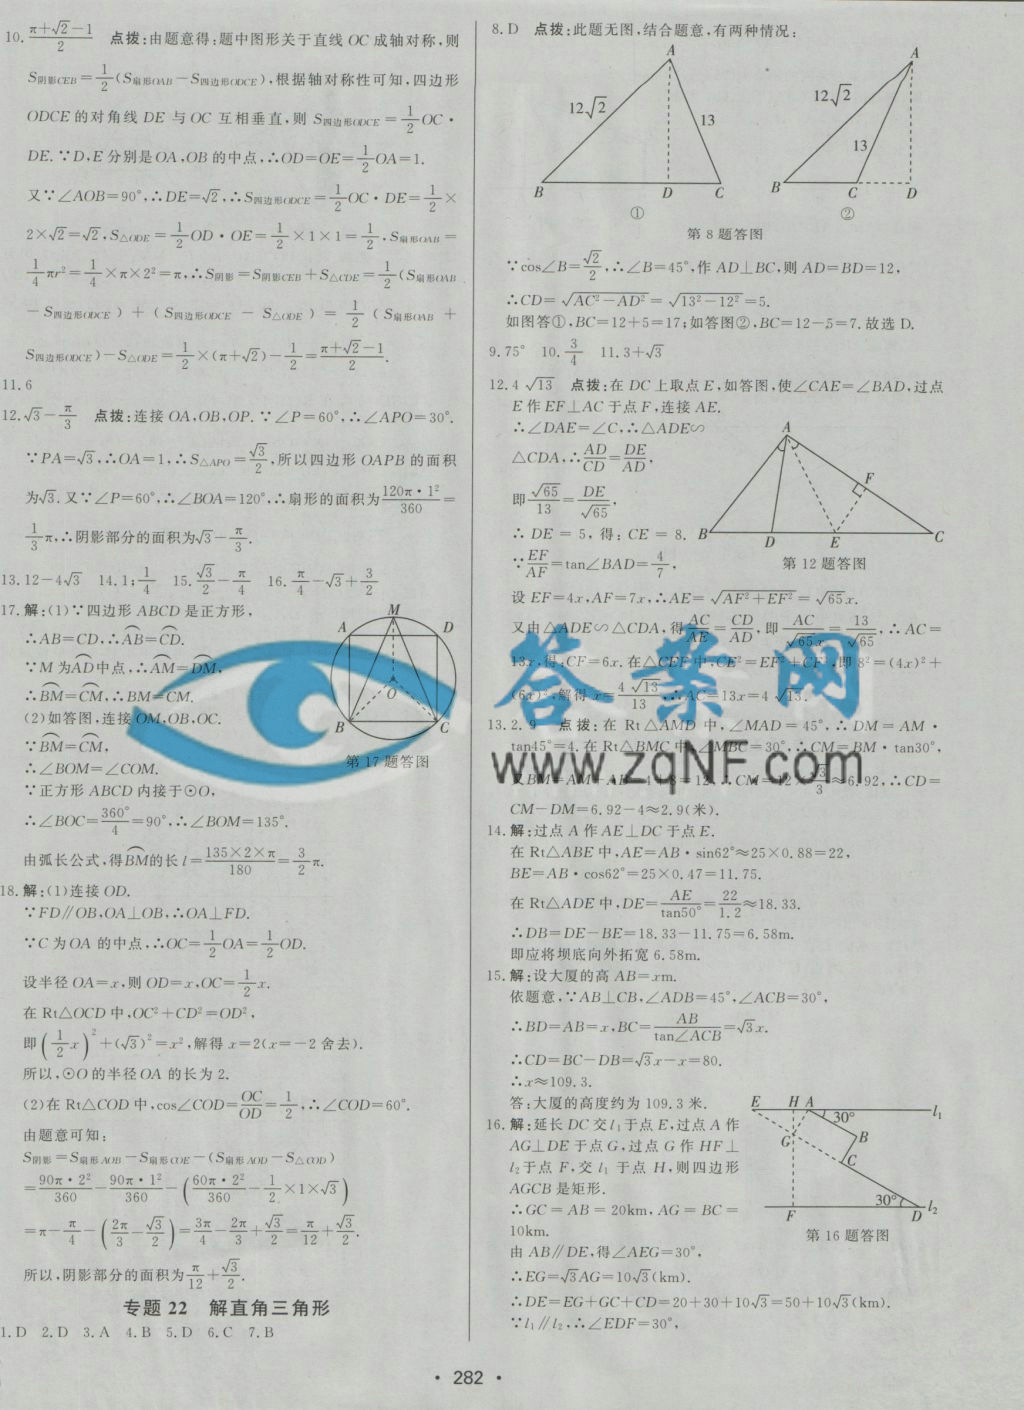 10. (π+√2−1)/2　点拨:由题意得:题中图形关于直线 OC 成轴对称,则
S阴影CEB=1/2(S扇形OAB−S四边形ODCE),根据轴对称性可知,四边形
ODCE 的对角线 DE 与 OC 互相垂直,则 S四边形ODCE=1/2OC·
DE.∵D,E 分别是 OA,OB 的中点,∴OD=OE=1/2OA=1.
又∵∠AOB=90°,∴DE=√2,∴S四边形ODCE=1/2OC·DE=1/2×
2×√2=√2,S△ODE=1/2OD·OE=1/2×1×1=1/2,S扇形OAB=
1/4πr²=1/4×π×2²=π,∴S阴影=S阴影CEB+S△CDE=1/2(S扇形OAB
−S四边形ODCE)+(S四边形ODCE−S△ODE)=1/2(S扇形OAB+
S四边形ODCE)−S△ODE=1/2×(π+√2)−1/2=(π+√2−1)/2.
11.6
12.√3−π/3　点拨:连接 OA,OB,OP.∵∠P=60°,∴∠APO=30°.
∵PA=√3,∴OA=1,∴S△APO=√3/2,所以四边形 OAPB 的面积
为√3.又∵∠P=60°,∴∠BOA=120°,∴扇形的面积为(120π·1²)/360=
1/3π,∴阴影部分的面积为√3−π/3.
13.12−4√3　14.1;1/4　15.√3/2−π/4　16.π/4−√3+3/2
17.解:(1)∵四边形 ABCD 是正方形,
∴AB=CD,∴AB⌒=CD⌒.
∵M 为AD⌒中点,∴AM⌒=DM⌒,
∴BM⌒=CM⌒,∴BM=CM.
(2)如答图,连接 OM,OB,OC.
∵BM⌒=CM⌒,
∴∠BOM=∠COM.
∵正方形 ABCD 内接于⊙O,
∴∠BOC=360°/4=90°,∴∠BOM=135°.
由弧长公式,得BM⌒的长 l=(135×2×π)/180=3/2π.
M
A
D
O
B
C
第 17 题答图
18.解:(1)连接 OD.
∵FD∥OB,OA⊥OB,∴OA⊥FD.
∵C 为 OA 的中点,∴OC=1/2OA=1/2OD.
设半径 OA=x,则 OD=x,OC=1/2x.
在 Rt△OCD 中,OC²+CD²=OD²,
即(1/2x)²+(√3)²=x²,解得 x=2(x=−2 舍去).
所以,⊙O 的半径 OA 的长为 2.
(2)在 Rt△COD 中,cos∠COD=OC/OD=1/2,∴∠COD=60°.
由题意可知:
S阴影=S扇形AOB−S扇形COE−(S扇形AOD−S△COD)
=(90π·2²)/360−(90π·1²)/360−((60π·2²)/360−1/2×1×√3)
=π−π/4−(2π/3−√3/2)=3π/4−2π/3+√3/2=π/12+√3/2.
所以,阴影部分的面积为π/12+√3/2.
专题 22　解直角三角形
1.D　2.D　3.A　4.B　5.D　6.C　7.B
8.D　点拨:此题无图,结合题意,有两种情况:
A
12√2
13
B
D
C
①
A
12√2
13
B
C
D
②
第 8 题答图
∵cos∠B=√2/2,∴∠B=45°,作 AD⊥BC,则 AD=BD=12,
∴CD=√(AC²−AD²)=√(13²−12²)=5.
如图答①,BC=12+5=17;如答图②,BC=12−5=7.故选 D.
9.75°　10.3/4　11.3+√3
12.4√13　点拨:在 DC 上取点 E,如答图,使∠CAE=∠BAD,过点
E 作 EF⊥AC 于点 F,连接 AE.
∴∠DAE=∠C,∴△ADE∽
△CDA,∴AD/CD=DE/AD,
即√65/13=DE/√65,
∴DE=5,得:CE=8.
∵EF/AF=tan∠BAD=4/7,
A
F
B
D
E
C
第 12 题答图
设 EF=4x,AF=7x,∴AE=√(AF²+EF²)=√65x.
又由△ADE∽△CDA,得AC/AE=CD/AD,即AC/√65x=13/√65,∴AC=
13x,得:CF=6x.在△CEF 中,CE²=EF²+CF²,即 8²=(4x)²+
(6x)²,解得 x=4√13/13,∴AC=13x=4√13.
13.2.9　点拨:在 Rt△AMD 中,∠MAD=45°,∴DM=AM·
tan45°=4.在 Rt△BMC 中,∠MBC=30°,∴CM=BM·tan30°,
又BM=AM+AB=4+8=12,∴CM=12×√3/3≈6.92,∴CD=
CM−DM=6.92−4≈2.9(米).
14.解:过点 A 作 AE⊥DC 于点 E.
在 Rt△ABE 中,AE=AB·sin62°≈25×0.88=22,
BE=AB·cos62°=25×0.47=11.75.
在 Rt△ADE 中,DE=AE/tan50°=22/1.2≈18.33.
∴DB=DE−BE=18.33−11.75=6.58m.
即应将坝底向外拓宽 6.58m.
15.解:设大厦的高 AB=xm.
依题意,∵AB⊥CB,∠ADB=45°,∠ACB=30°,
∴BD=AB=x,BC=AB/tan∠ACB=√3x.
∴CD=BC−DB=√3x−x=80.
∴x≈109.3.
答:大厦的高度约为 109.3 米.
16.解:延长 DC 交 l₁于点 E,过点 A 作
AG⊥DE 于点 G,过点 G 作 HF⊥
l₂于点 F,交 l₁ 于点 H,则四边形
AGCB 是矩形.
∴GC=AB=20km,AG=BC=
10km.
由 AB∥DE,得∠AEG=30°,
∴EG=√3AG=10√3(km).
∴DE=EG+GC+CD=20+30+10√3=50+10√3(km).
∵l₁∥l₂,∴∠EDF=30°,
E
H
A
l₁
30°
G
B
C
30°
F
D
l₂
第 16 题答图
答案网
www.zqNF.com
· 282 ·